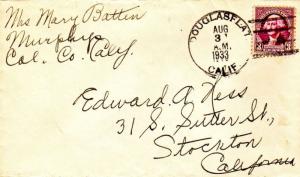 Mrs Mary Battin
Murphys
Cal. Co. Calif.
DOUGLASFLAT
AUG
31
A.M.
1933
CALIF.
Edward A. Ness
31 S. Sutter St.,
Stockton
California